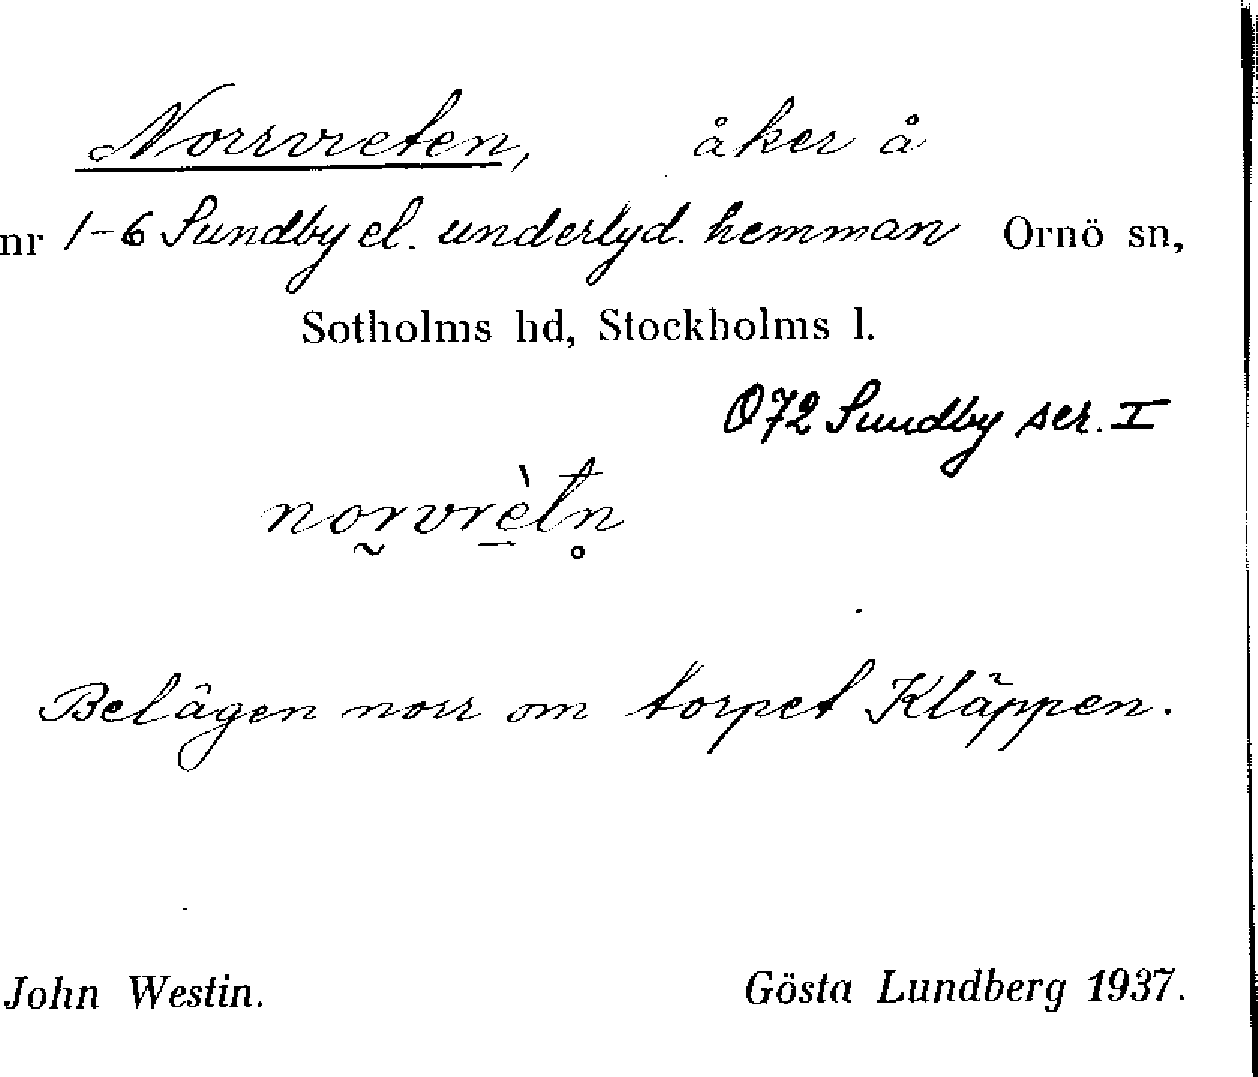 Norrvreten, åker å
nr 1-6 Sundby el. underlyd. hemman Ornö sn,
Sotholms hd, Stockholms l.
Ö72 Sundby ser. I
nor̰vrè̱tn̥
Belägen norr om torpet Kläppen.
John Westin. Gösta Lundberg 1937.